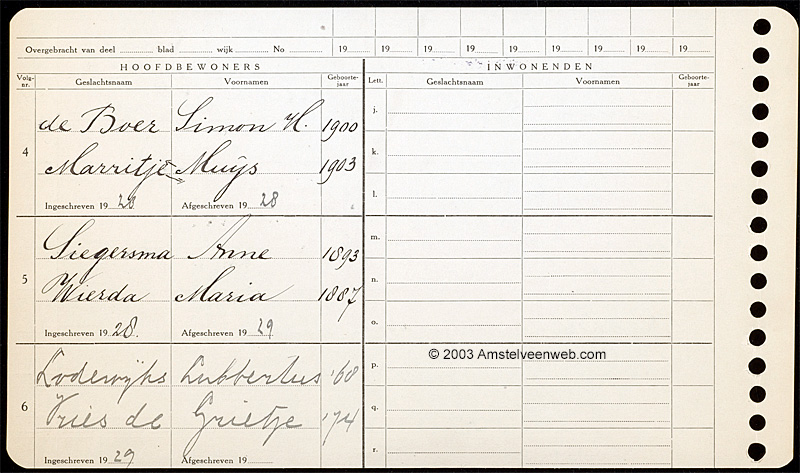 Overgebracht van deel ............ blad ............ wijk ............ No ............ 19 19 19 19 19 19 19 19 19
HOOFDBEWONERS INWONENDEN
Volg-nr. Geslachtsnaam Voornamen Geboorte-jaar Lett. Geslachtsnaam Voornamen Geboorte-jaar
j.
de Boer Simon H. 1900
4 k.
Marritje Muijs 1903
l.
Ingeschreven 19 28 Afgeschreven 19 28
m.
Siegersma Anne 1893
5 n.
Wierda Maria 1887
o.
Ingeschreven 19 28. Afgeschreven 19 29
© 2003 Amstelveenweb.com
p.
Lodewijks Lubbertus '68
6 q.
Vries de Grietje '74
r.
Ingeschreven 19 29 Afgeschreven 19